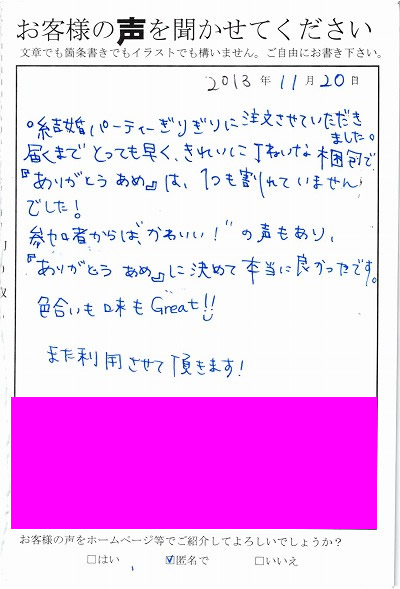 お客様の声を聞かせてください
文章でも箇条書きでもイラストでも構いません。ご自由にお書き下さい。
2013年11月20日
。結婚パーティーぎりぎりに注文させていただき
ました。
届くまでとっても早く、きれいに丁ねいな梱包で
『ありがとうあめ』は、1つも割れていません
でした!
参加者からは"かわいい!"の声もあり、
『ありがとうあめ』に決めて本当に良かったです。
色合いも味もGreat!!
また利用させて頂きます!
お客様の声をホームページ等でご紹介してよろしいでしょうか?
□はい ☑匿名で □いいえ